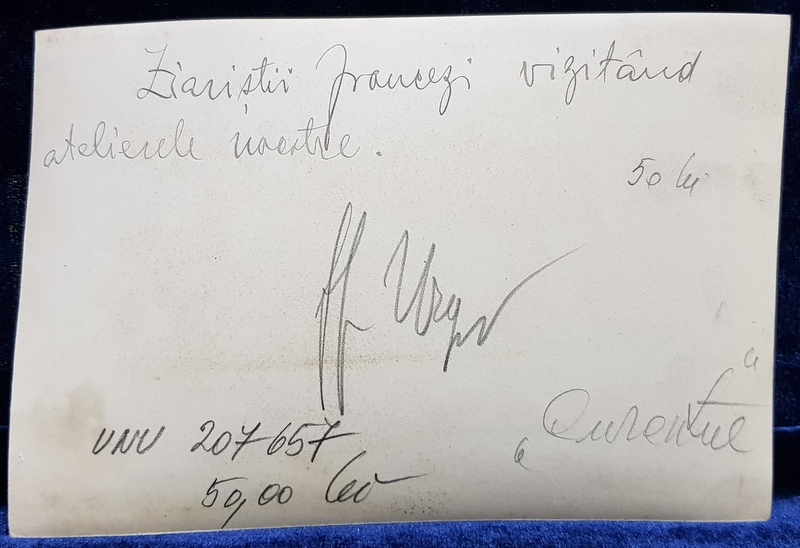 Ziariștii francezi vizitând
atelierele noastre.
50 lei
"Curentul"
UNU 207657
50,00 lei